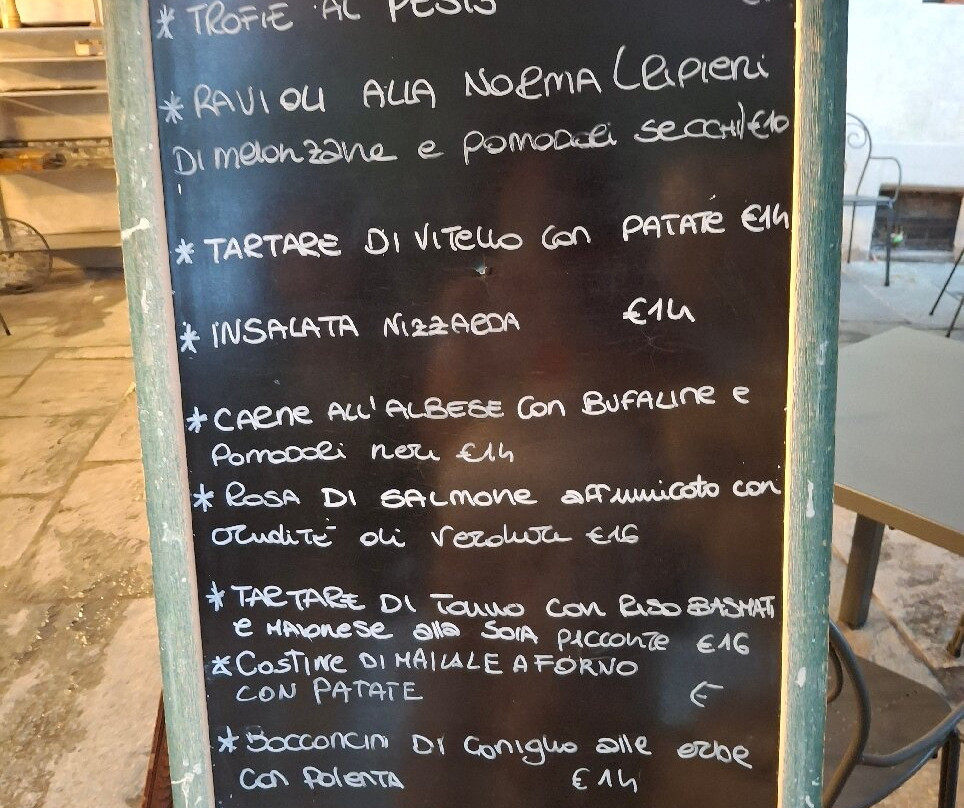 * TROFIE AL PESTO
* RAVIOLI ALLA NORMA (RIPIENI
DI melanzane e pomodori secchi) €10
* TARTARE DI VITELLO con PATATE €14
* INSALATA NIZZARDA €14
* CARNE ALL'ALBESE con BUFALINE e
Pomodori neri €14
* ROSA DI SALMONE affumicato con
crudité di verdura €16
* TARTARE DI Tonno con RISO BASMATI
e MAIONESE alla SOIA PICCANTE €16
* COSTINE DI MAIALE A FORNO
CON PATATE €
* Bocconcini DI Coniglio alle erbe
con Polenta €14